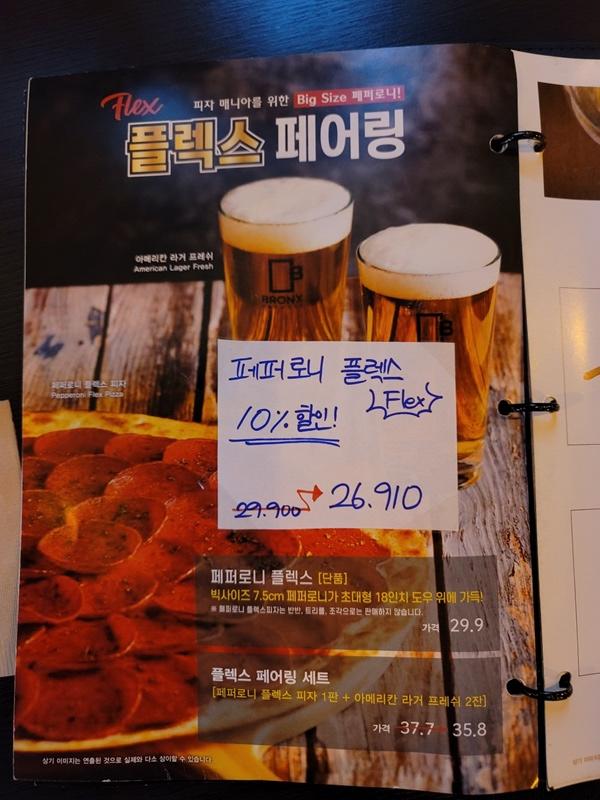 Flex
피자 매니아를 위한 Big Size 페퍼로니!
플렉스 페어링
아메리칸 라거 프레쉬
American Lager Fresh
B
BRONX
B
페퍼로니 플렉스 피자
Pepperoni Flex Pizza
페퍼로니 플렉스
Flex
10% 할인!
29.900 → 26.910
페퍼로니 플렉스 [단품]
빅사이즈 7.5cm 페퍼로니가 초대형 18인치 도우 위에 가득!
※ 페퍼로니 플렉스피자는 반반, 트리플, 조각으로는 판매하지 않습니다.
가격 29.9
플렉스 페어링 세트
[페퍼로니 플렉스 피자 1판 + 아메리칸 라거 프레쉬 2잔]
가격 37.7 → 35.8
상기 이미지는 연출된 것으로 실제와 다소 상이할 수 있습니다.